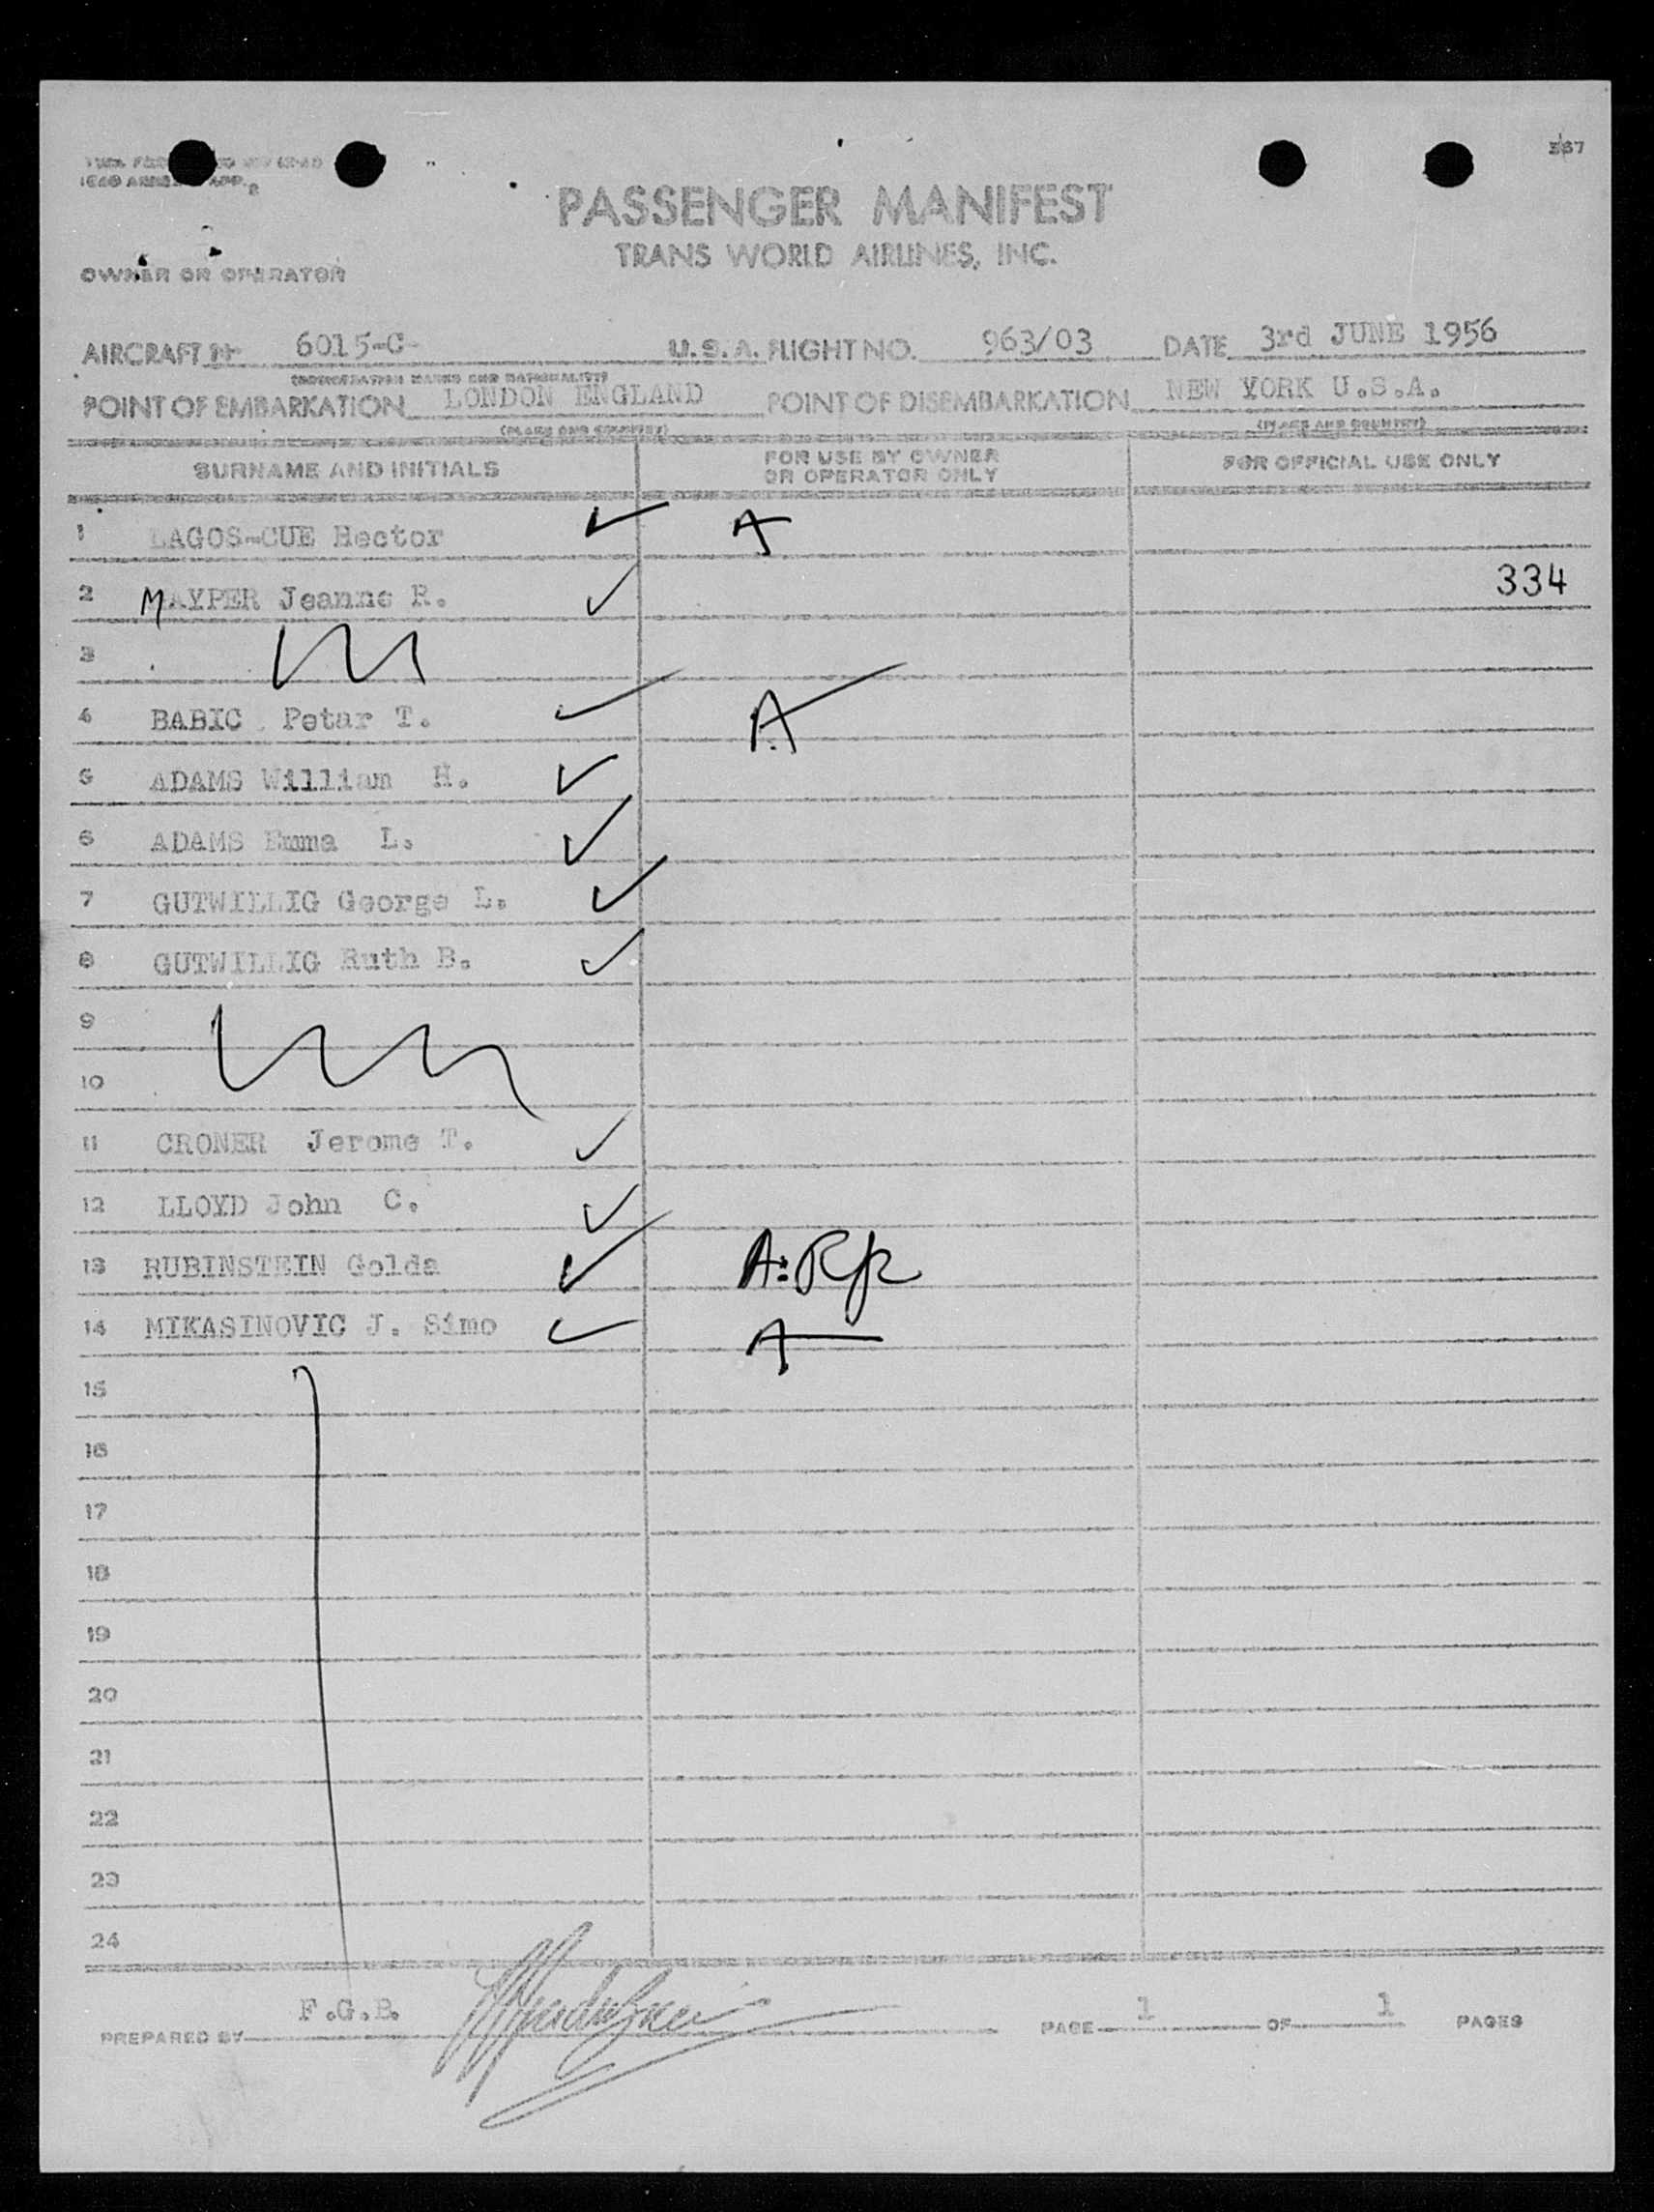 367
PASSENGER MANIFEST
TRANS WORLD AIRLINES, INC.
OWNER OR OPERATOR
AIRCRAFT 6015-C U.S.A. FLIGHT NO. 963/03 DATE 3rd JUNE 1956
(REGISTRATION MARKS AND NATIONALITY)
POINT OF EMBARKATION LONDON ENGLAND POINT OF DISEMBARKATION NEW YORK U.S.A.
(PLACE AND COUNTRY) (PLACE AND COUNTRY)
SURNAME AND INITIALS FOR USE BY OWNER OR OPERATOR ONLY FOR OFFICIAL USE ONLY
1 LAGOS-CUE Hector A
2 MAYPER Jeanne R. 334
3
4 BABIC Petar T. A
5 ADAMS William H.
6 ADAMS Emma L.
7 GUTWILLIG George L.
8 GUTWILLIG Ruth B.
9
10
11 CRONER Jerome T.
12 LLOYD John C.
13 RUBINSTEIN Golda
14 MIKASINOVIC J. Simo A
15
16
17
18
19
20
21
22
23
24
PREPARED BY F.G.B. PAGE 1 OF 1 PAGES